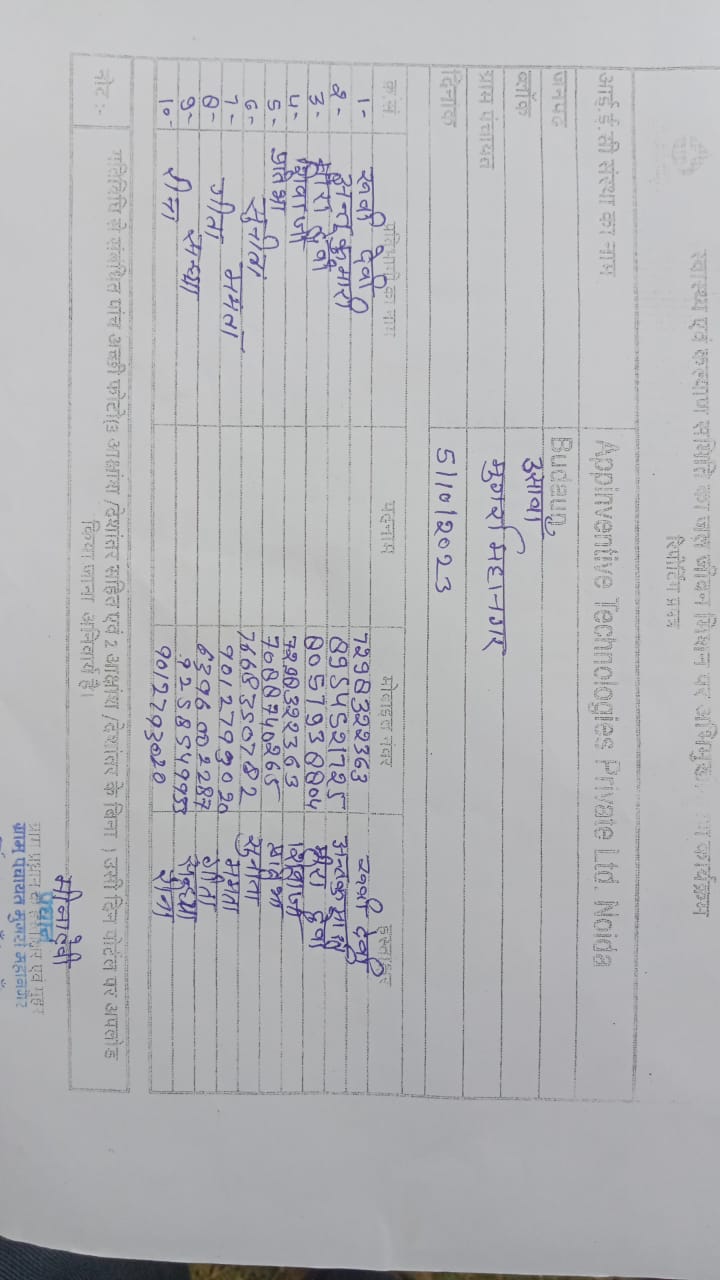 स्वास्थ्य एवं कल्याण समिति का जल जीवन मिशन पर अभिमुखी कार्यक्रम
रिपोर्टिंग प्रपत्र
आई.ई.सी संस्था का नाम Appinventive Technologies Private Ltd. Noida
जनपद Budaun
ब्लॉक उसावां
ग्राम पंचायत मुगर्रा महानगर
दिनांक 5/10/2023
क्र.सं प्रतिभागी का नाम पदनाम मोबाइल नंबर हस्ताक्षर
1- रूबी देवी 7298322363 रूबी देवी
2- अन्तकुमारी 8954521725
3- मीरा देवी 8057938804 मीरा देवी
4- शिवाजी 7298322363 शिवाजी
5- प्रतिभा 7088740265 प्रतिभा
6- सुनीता 7668350782 सुनीता
7- ममता 9012799020 ममता
8- गीता 6396002287 गीता
9- सन्ध्या 9258549953 सन्ध्या
10- रीना 9012793020 रीना
नोट :- गतिविधि से संबंधित पांच अच्छी फोटो(3 अक्षांश /देशांतर सहित एवं 2 अक्षांश /देशांतर के बिना ) उसी दिन पोर्टल पर अपलोड
किया जाना अनिवार्य है।
मीना देवी
ग्राम प्रधान के हस्ताक्षर एवं मुहर
प्रधान
ग्राम पंचायत मुगर्रा महानगर